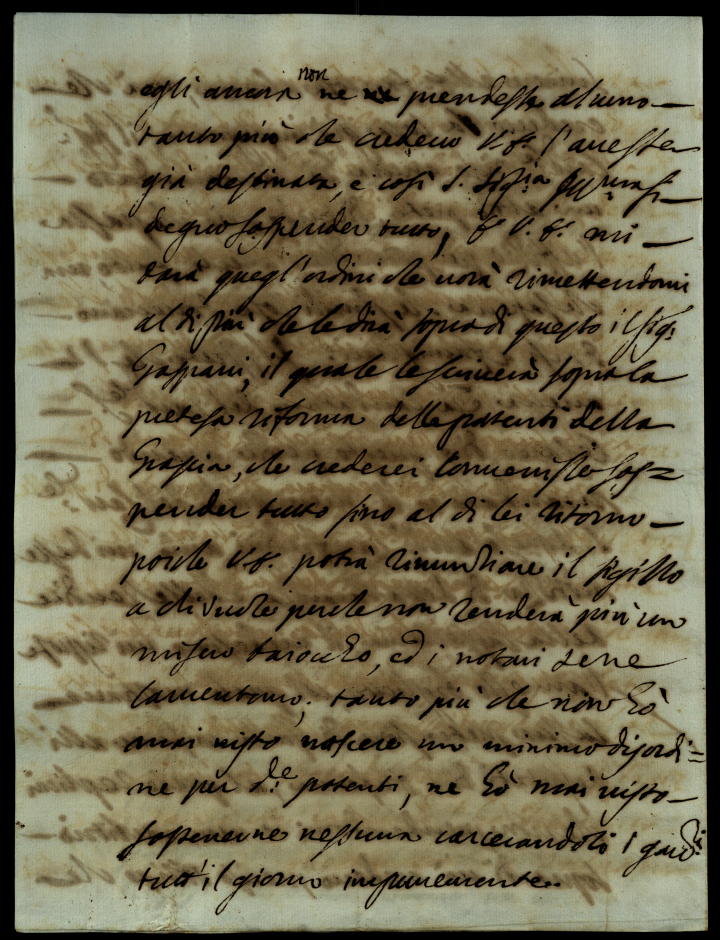 egli ancora non ne prendesse alcuno
tanto più che credevo V.S. l'avesse
già destinata, e così S. Sig.ria
degno sospender tutto, e V.S. mi
darà quegl'ordini che vorà rimettendomi
al di più che le dirà sopra di questo il Sig:
Graspiani, il quale le scriverà sopra la
pretesa riforma delle patenti della
Grascia, che crederei convenisse sos=
pender tutto sino al di lei ritorno
poiche V.S. potrà rinuntiare il sigillo
a chi vuole perche non renderà più un
misero baiocho, ed i notari se ne
lamentono, tanto più che non hò
mai visto nascere un minimo disordi=
ne per d.e patenti, ne hò mai visto
sospenerne nessuna carcerandoli i
tutt'il giorno impunemente.